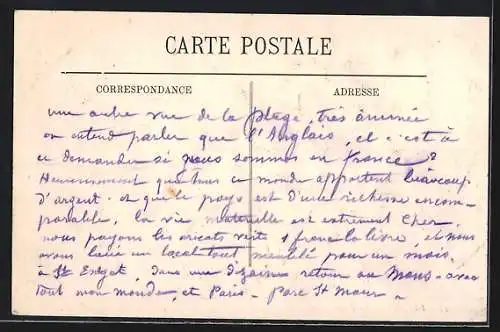 CARTE POSTALE
CORRESPONDANCE
ADRESSE
une autre vue de la plage, très animée
on entend parler que l'Anglais, et c'est à
ce demander si nous sommes en france?
Heureusement que tous ce monde apportent beaucoup
d'argent - or que le pays est d'une richesse incom-
parable, la vie matérielle est extrement cher,
nous payons les aricots verts 1 franc la livre, et nous
avons loué un local tout meublé pour un mois,
à St dans une dizaine retour au Mans - avec
tout mon monde, et Paris - Parc St Maur -